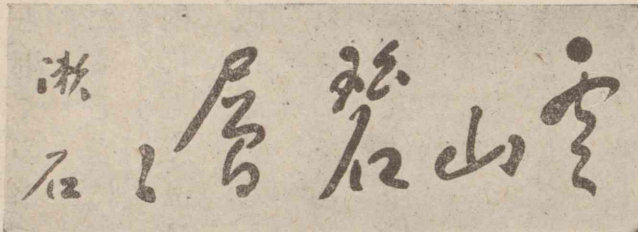 雲山碧層々
漱石